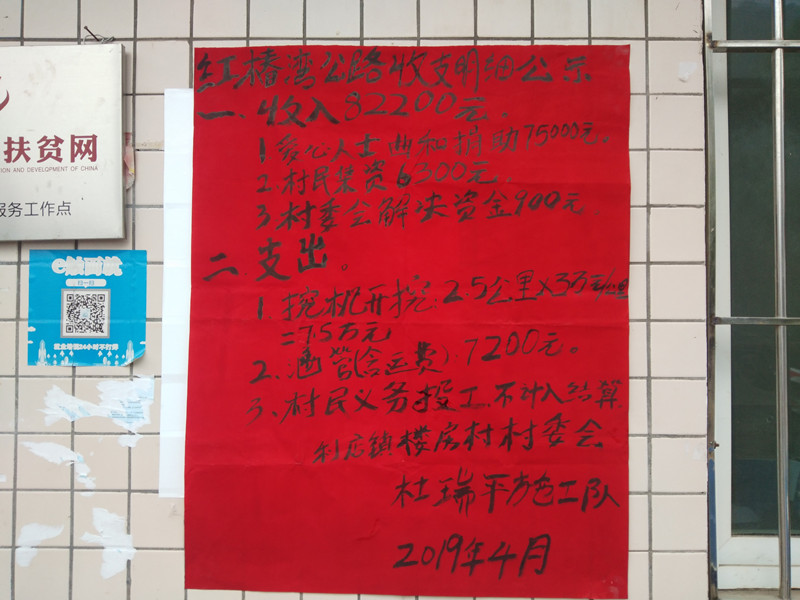 红椿湾公路收支明细公示
一.收入82200元.
1 爱心人士曲和捐助75000元.
2.村民集资6300元.
3.村委会解决资金900元.
二.支出。
1.挖机开挖:2.5公里×3万元/公里
=7.5万元
2、涵管(含运费):7200元。
3、村民义务投工.不计入结算
利店镇楼房村村委会
杜瑞平施工队
2019年4月
扶贫网
TION AND DEVELOPMENT OF CHINA
服务工作点
扫一扫